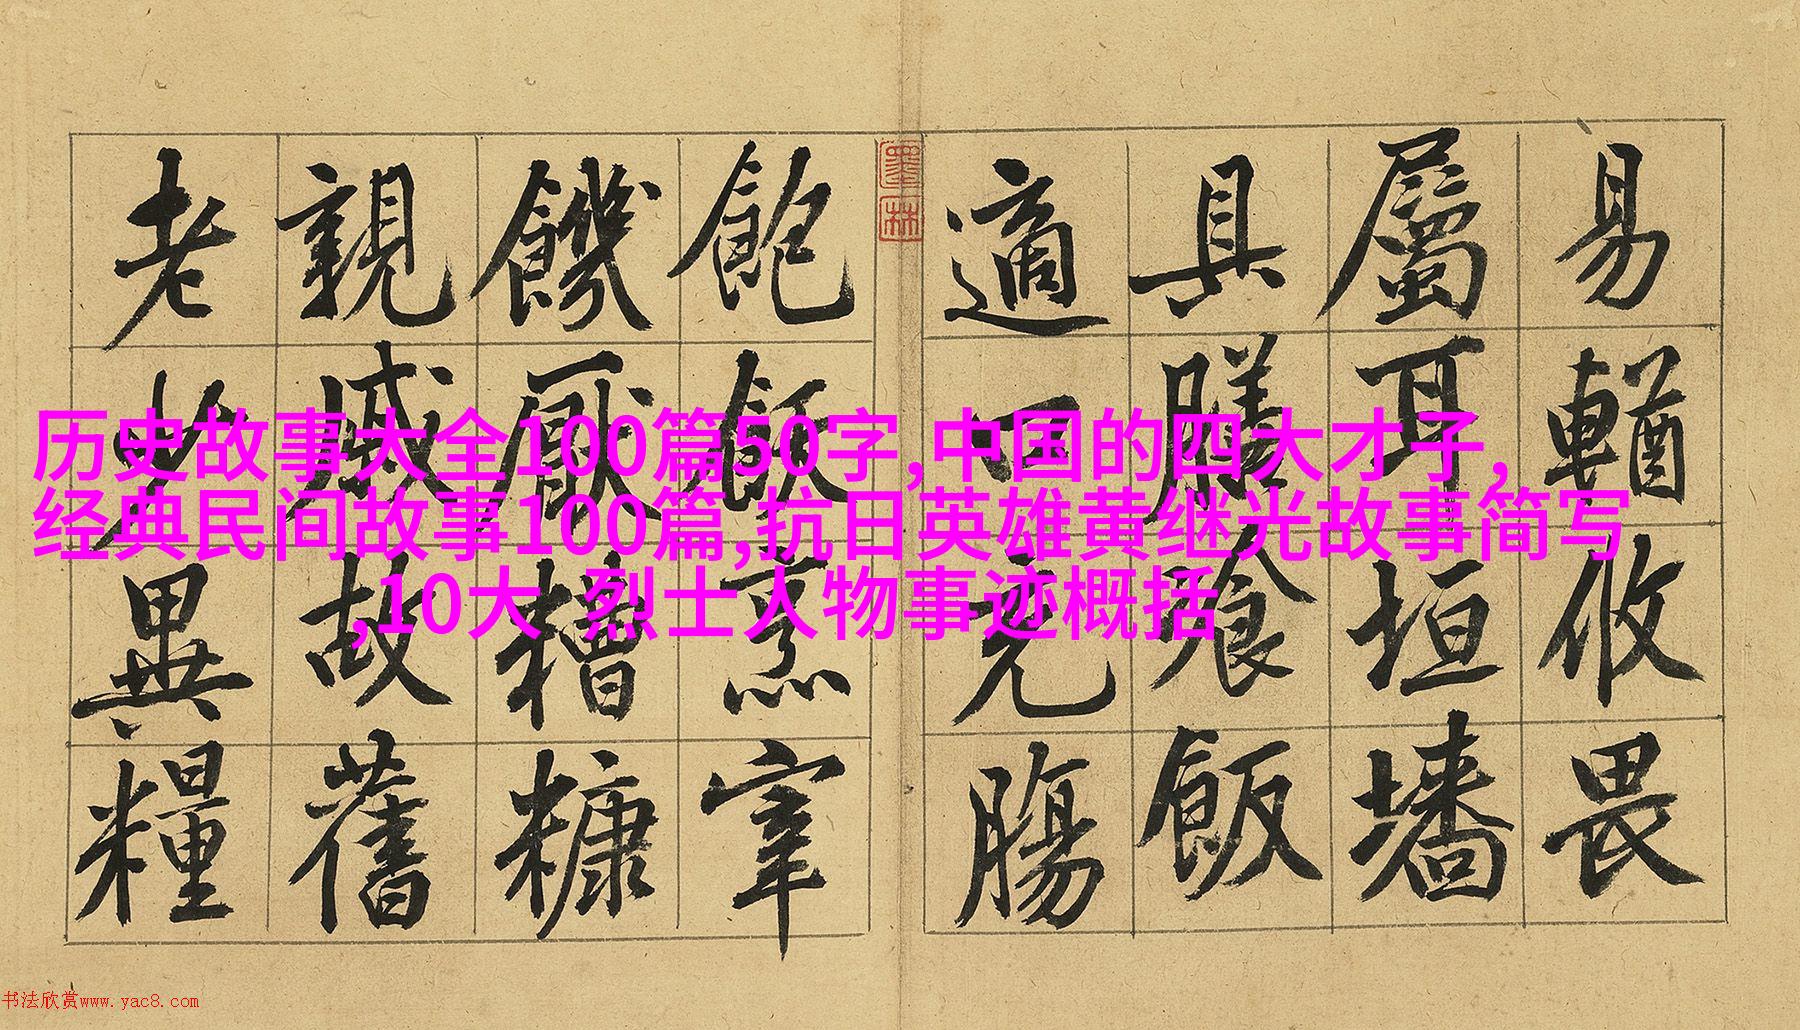 历史故事大全100篇50字,中国的四大才子,
经典民间故事100篇,抗日英雄黄继光故事简写
,10大 烈士人物事迹概括
易輶攸畏
屬耳垣墻
具膳飡飯
適口充腸
墨林
飽飫烹宰
饑厭糟糠
親戚故舊
老少異糧
书法欣赏www.yac8.com